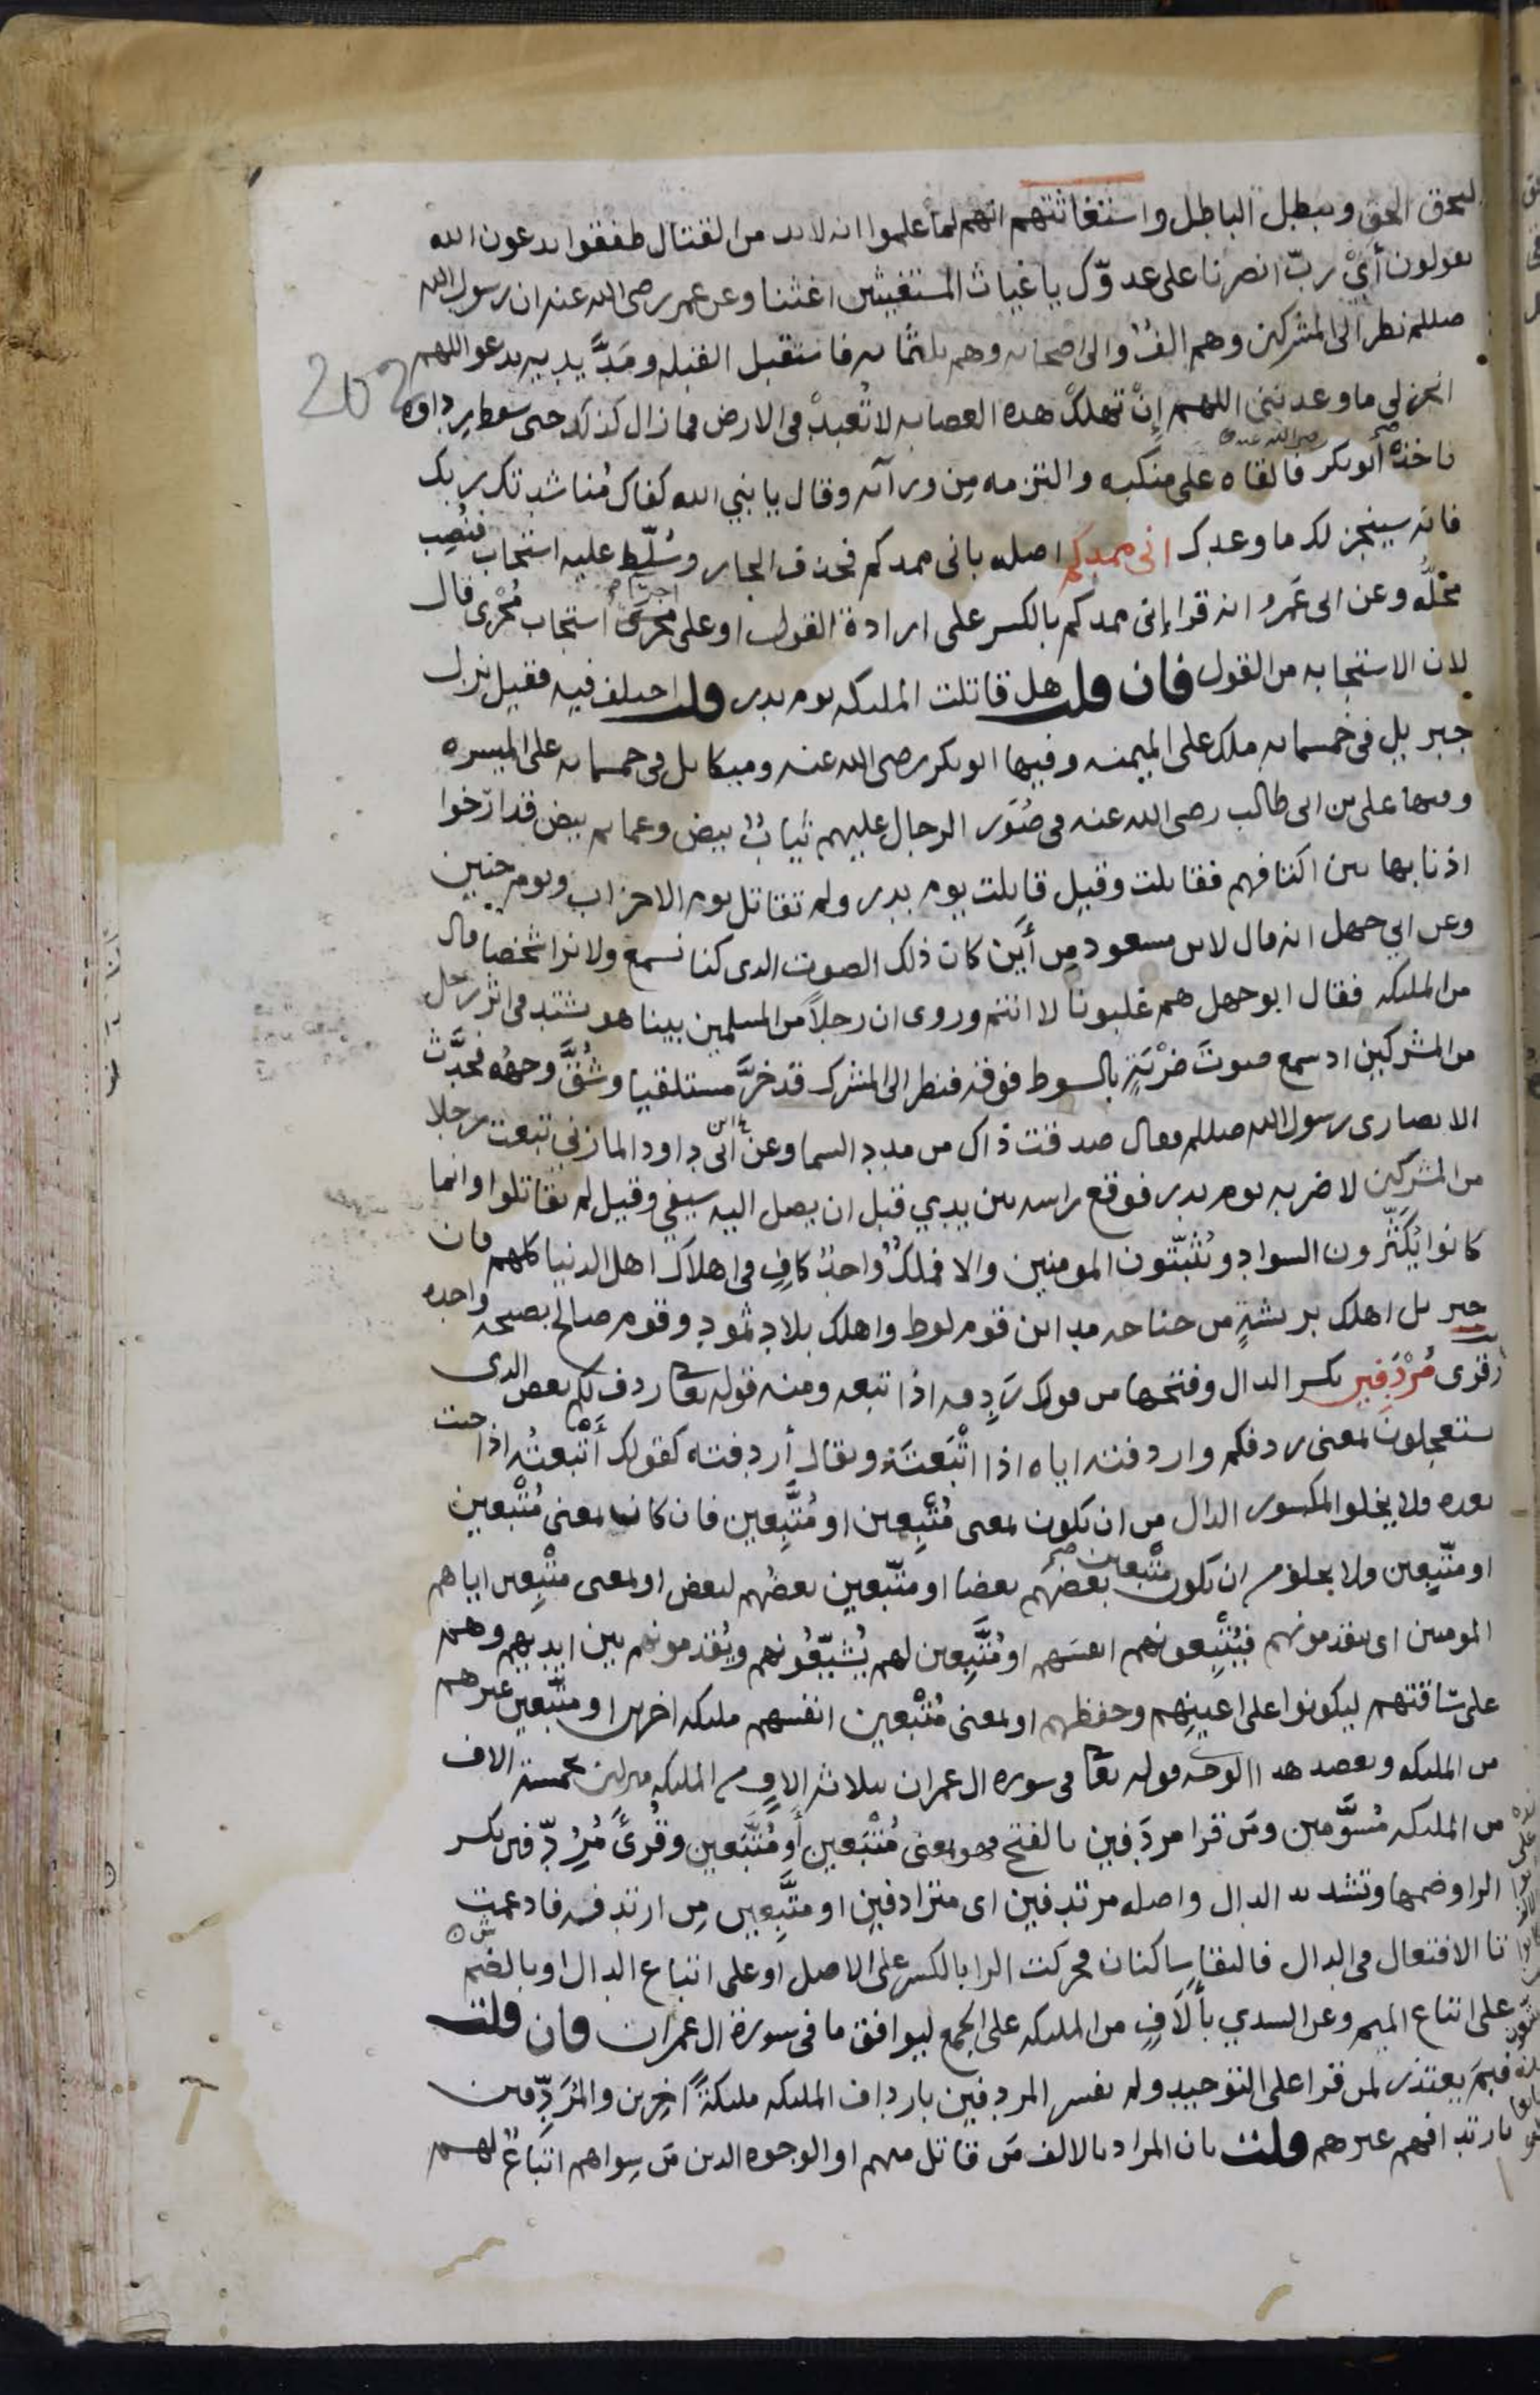 ليحق الحق ويبطل الباطل واستغاثتهم انهم لما علموا انه لابد من القتال طفقوا يدعون الله
يقولون أيْ ربّ انصرنا على عدوّك يا غياث المستغيثين اغثنا وعن عمر رضى الله عنه ان رسول الله
صللم نظر الى المشركين وهم الفٌ والى اصحابه وهم ثلثمائه فاستقبل القبله ومَدَّ يديه يدعو اللهم
انجز لى ما وعدتنى اللهم إنْ تهلكْ هذه العصابه لا تُعبدْ فى الارض فما زال كذلك حتى سقط رداوه
فاخذه أبو بكر رضى الله عنه فالقاه على منكبه والتزمه مِن ورآئه وقال يا نبي الله كفاك مُناشدتك ربك
فانه سينجز لك ما وعدك انى ممدكم اصله بانى ممدكم فحذف الجار وسُلّط عليه استجاب فنُصِب
محلُّه وعن ابى عَمرو انه قرا إنى ممدكم بالكسر على ارادة القول او على اجرآء استجاب مُجْرى قال
لان الاستجابه من القول فان قلت هل قاتلت الملئكه يوم بدر قلت اختلف فيه فقيل نزل
جبريل فى خمسمائه ملك على الميمنه وفيها ابو بكر رضى الله عنه وميكائل فى خمسمائه على الميسره
وفيها على بن ابى طالب رضى الله عنه فى صُوَر الرجال عليهم ثيابٌ بيض وعمائم بيض قد ارخوا
اذنابها بين اكتافهم فقاتلت وقيل قاتلت يوم بدر ولم تقاتل يوم الاحزاب ويوم حنين
وعن ابي جهل انه قال لابن مسعود مِن أينَ كان ذلك الصوت الذى كنا نسمع ولا نرا شخصا قال
من الملئكه فقال ابو جهل هم غلبونا لا انتم وروى ان رجلاً من المسلمين بينا هو يشتد فى اثر رجل
من المشركين اذ سمع صوتَ ضرْبَةٍ بالسوط فوقه فنظر الى المشرك قد خرَّ مستلقيا وشُقَّ وجهُه فحدَّث
الانصارى رسول الله صللم فقال صدقت ذاك من مدد السما وعن ابى داود المازني تبعت رجلا
من المشركين لاضربه يوم بدر فوقع راسه بين يديي قبل ان يصل اليه سيفي وقيل لم يقاتلوا وانما
كانوا يُكَثّرون السواد ويُثَبّتون المومنين والا فملكٌ واحدٌ كافٍ فى اهلاك اهل الدنيا كلهم فان
جبريل اهلك بريشةٍ من جناحه مداين قوم لوط واهلك بلاد ثمود وقوم صالح بصيحه واحده
وقرى مُرْدِفين بكسر الدال وفتحها من قولك رَدِفه اذا تبعه ومنه قوله تعا ردف لكم بعض الذى
تستعجلون بمعنى ردفكم واردفته اياه اذا اتْبَعتَه ويقال أردفته كقولك أَتْبعتُه اذا جئت
بعده ولا يخلوا المكسور الدال من ان يكون بمعنى مُتْبِعين او مُتَّبِعين فان كان بمعنى مُتْبِعين
او متّبِعين ولا يخلو من ان يكون متْبعين بعضَهم بعضا او متّبعين بعضُهم لبعض او بمعنى متْبِعين اياهم
المومنين اى يتقدمونهم فيُتْبِعونهم انفسَهم او مُتَّبِعين لهم يُشيّعُونهم ويُقدمونهم بين ايديهم وهم
على سَاقتهم ليكونوا على اعينِهم وحفظهم او بمعنى مُتْبِعين انفسهم ملئكه اخرين او متّبعين غيرهم
من الملئكه ويعضد هذا الوجه قوله تعا فى سوره ال عمران بثلاثه الافٍ من الملئكه منزلين بخمسة الاف
من الملئكه مُسَوَّمين ومَن قرا مردَفين بالفتح فهو بمعنى مُتْبَعين أو مُتَّبَعين وقُرئ مُرُدِّفين بكسر
الرا وضمها وتشديد الدال واصله مرتدفين اى مترادفين او متَّبِعين مِن ارتدفه فادغمت
تا الافتعال فى الدال فالتقا ساكنان فحركت الرا بالكسر على الاصل او على اتباع الدال او بالضم
على اتباع الميم وعن السدي بألَافٍ من الملئكه على الجمع ليوافق ما فى سورة ال عمران فان قلت
فبمَ يعتذر لمن قرا على التوحيد ولم يفسر المردفين بارداف الملئكه ملئكةً اخرين والمُردِّفين
بارتدافهم غيرهم قلت بان المراد بالالف مَن قاتل منهم او الوجوه الذين مَن سِواهم اتباعٌ لهم